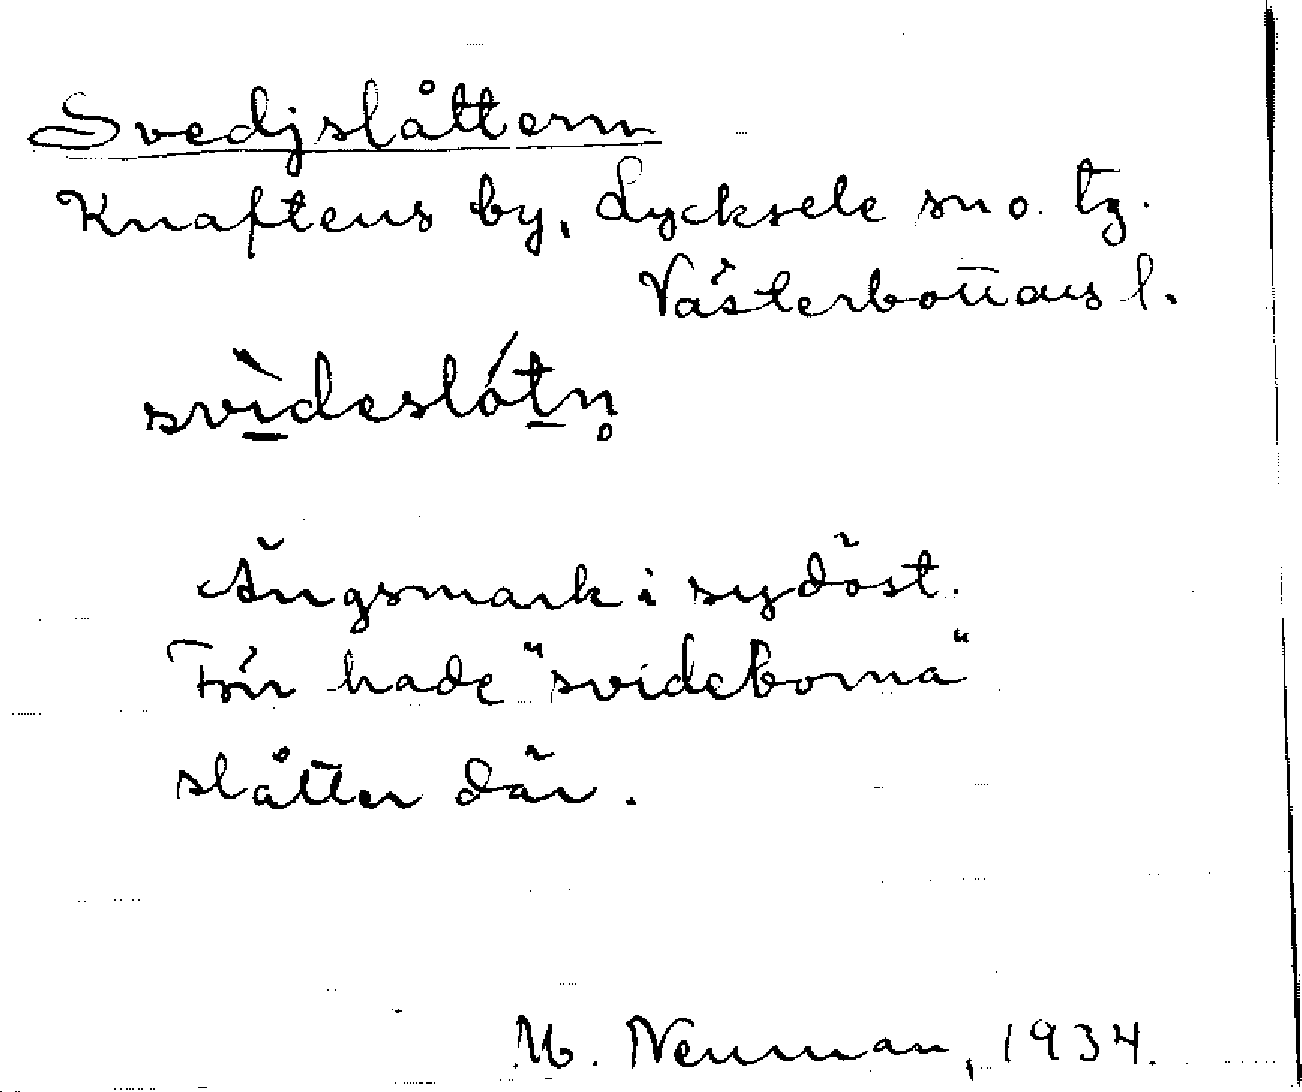 Svedjslåttern
Knaftens by, Lycksele sn o. tg.
Västerbottens l.
svìdeslótn̥
Ängsmark i sydöst.
Förr hade "svideborna"
slåtter där.
M. Neuman, 1934.